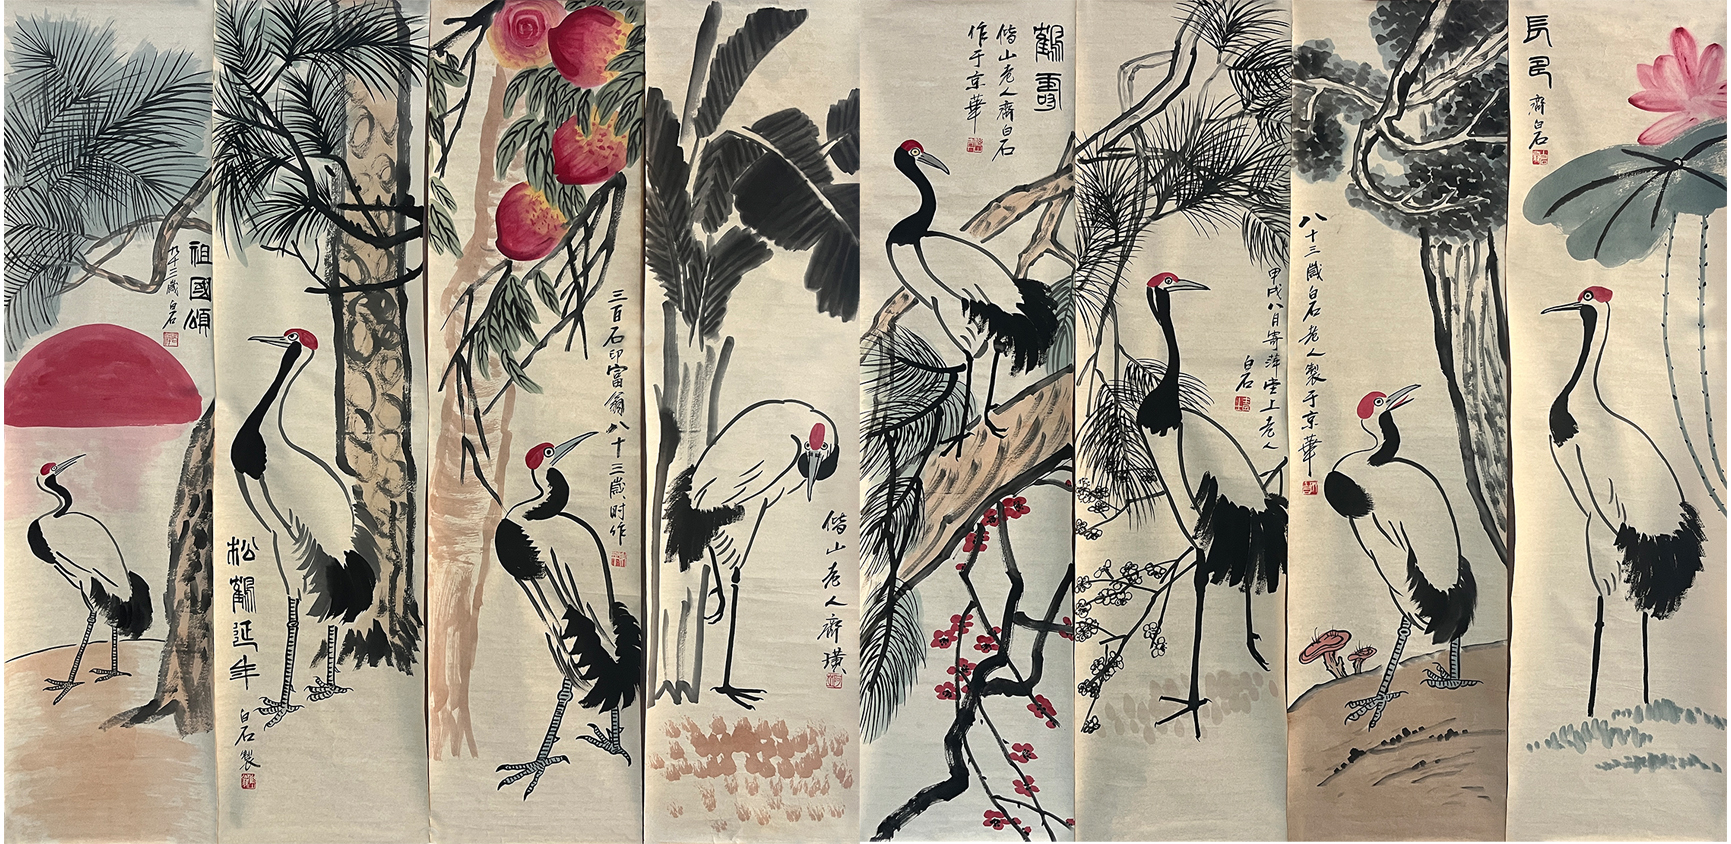 祖國頌
九十三歲白石
松鶴延年
白石製
三百石印富翁八十三歲時作
偕山老人齊璜
鶴壽
偕山老人齊白石
作于京華
甲戌八月寄萍堂上老人
白石
八十三歲白石老人製于京華
長居
齊白石